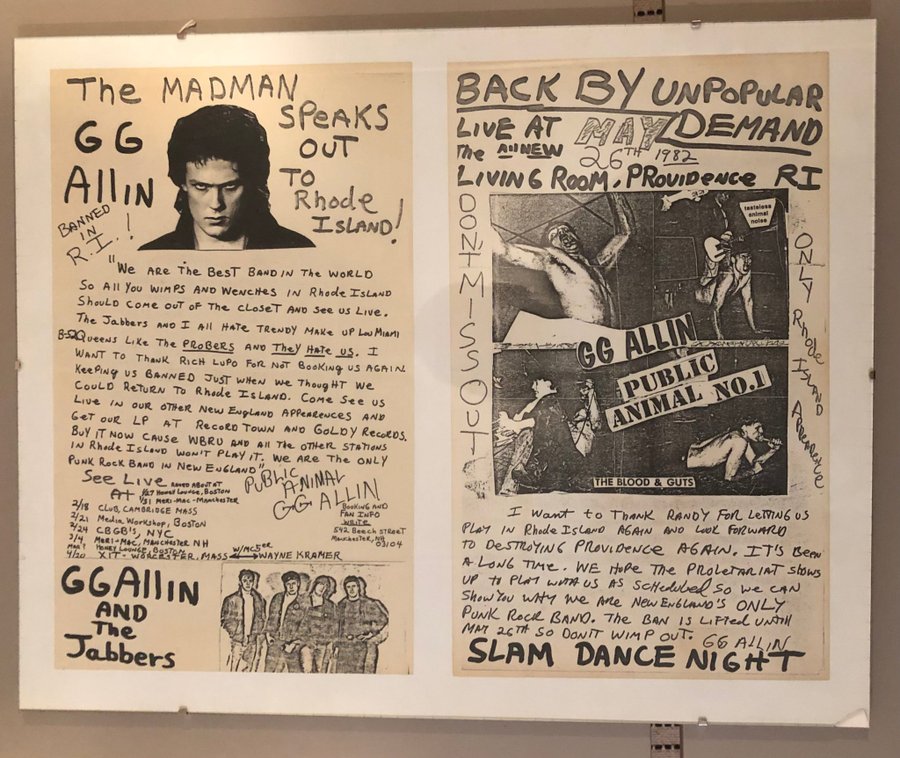 The MADMAN
SPEAKS
OUT
TO
Rhode
ISLAND!
GG
ALLIN
BANNED
IN
R.I..!
"WE ARE THE BEST BAND IN THE WORLD
SO ALL YOU WIMPS AND WENCHES IN RHODE ISLAND
SHOULD COME OUT OF THE CLOSET AND SEE US LIVE.
THE JABBERS AND I ALL HATE TRENDY MAKE UP LOU MIAMI
B-52 QUEENS LIKE THE PROBERS AND THEY HATE US. I
WANT TO THANK RICH LUPO FOR NOT BOOKING US AGAIN
KEEPING US BANNED JUST WHEN WE THOUGHT WE
COULD RETURN TO RHODE ISLAND. COME SEE US
LIVE IN OUR OTHER NEW ENGLAND APPEARENCES AND
GET OUR LP AT RECORD TOWN AND GOLDY RECORDS.
BUY IT NOW CAUSE WBRU AND ALL THE OTHER STATIONS
IN RHODE ISLAND WON'T PLAY IT. WE ARE THE ONLY
PUNK ROCK BAND IN NEW ENGLAND"
SEE LIVE RAVED ABOUT AT
AT 1/27 HONEY LOUNGE, BOSTON
1/31 MERI-MAC-MANCHESTER
2/18 CLUB, CAMBRIDGE MASS
2/21 MEDIA WORKSHOP, BOSTON
2/24 CBGB'S, NYC
3/4 MERI-MAC, MANCHESTER NH
HONEY LOUNGE, BOSTON
4/20 XIT-WORCESTER, MASS W/MC5ER WAYNE KRAMER
PUBLIC
ANIMAL
GG ALLIN
BOOKING AND
FAN INFO
WRITE
542 BEECH STREET
MANCHESTER, NH
03104
GG ALLIN
AND
THE
Jabbers
BACK BY UNPOPULAR
DEMAND
LIVE AT
THE ALL NEW
MAY
26TH 1982
LIVING ROOM, PROVIDENCE RI
DON'T MISS OUT
tasteless
animal
noise
GG ALLIN
PUBLIC
ANIMAL NO.1
THE BLOOD & GUTS
ONLY Rhode ISLAND APPEARENCE
I WANT TO THANK RANDY FOR LETTING US
PLAY IN RHODE ISLAND AGAIN AND LOOK FORWARD
TO DESTROYING PROVIDENCE AGAIN. IT'S BEEN
A LONG TIME. WE HOPE THE PROLETARIAT SHOWS
UP TO PLAY WITH US AS SCHEDULED SO WE CAN
SHOW YOU WHY WE ARE NEW ENGLAND'S ONLY
PUNK ROCK BAND. THE BAN IS LIFTED UNTIL
MAY 26TH SO DON'T WIMP OUT. GG ALLIN
SLAM DANCE NIGHT